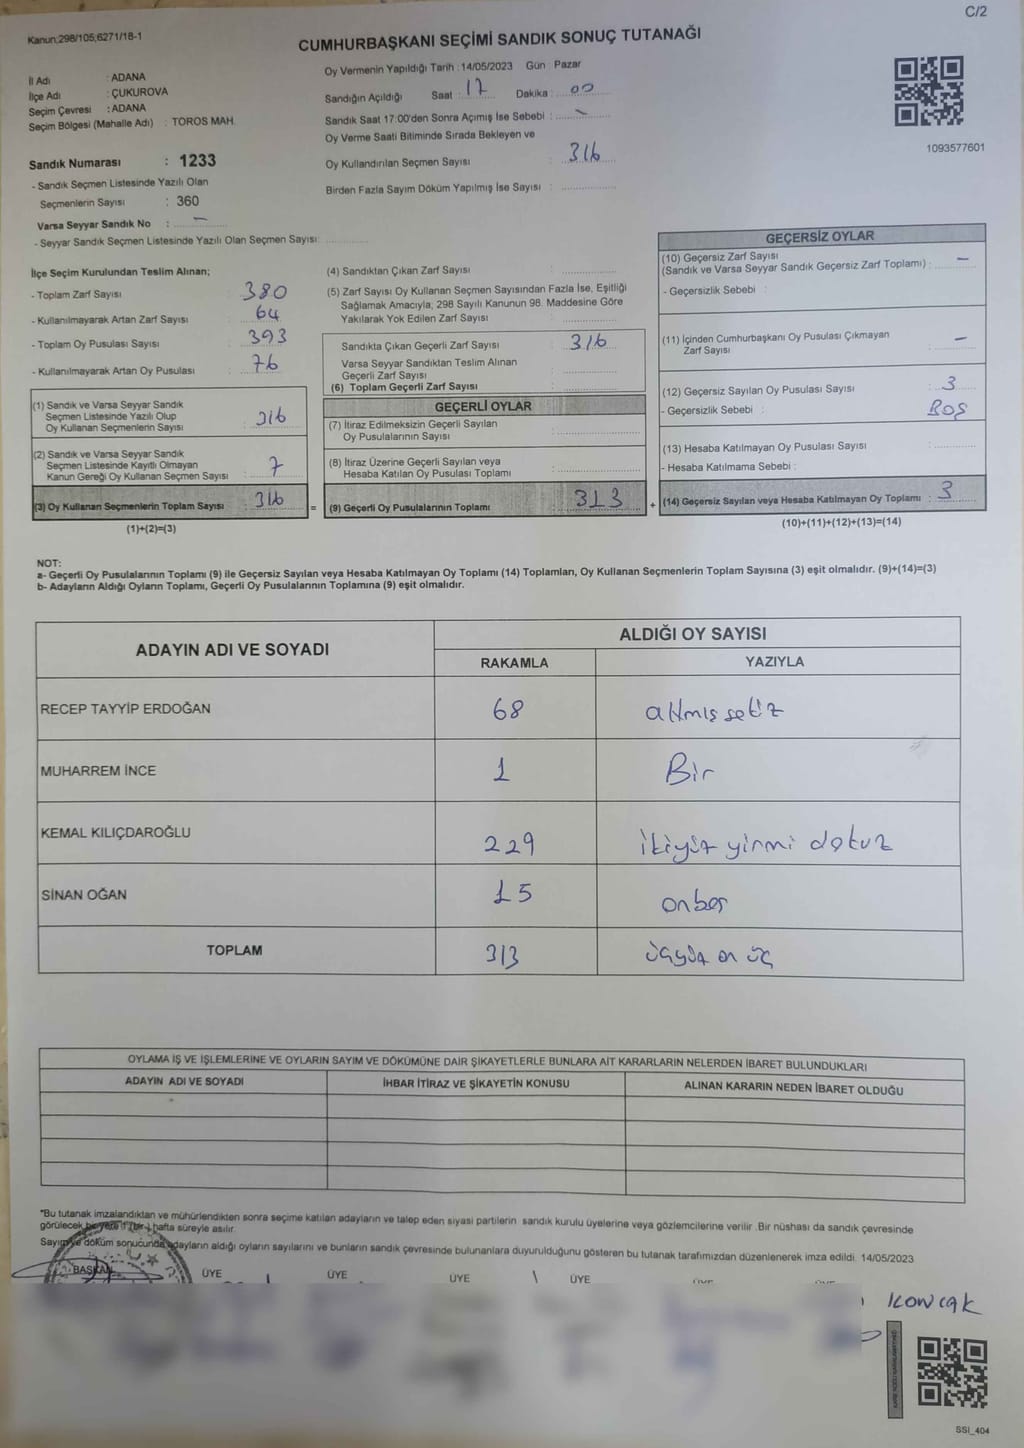 C/2
Kanun;298/105;6271/18-1
CUMHURBAŞKANI SEÇİMİ SANDIK SONUÇ TUTANAĞI
İl Adı : ADANA
İlçe Adı : ÇUKUROVA
Seçim Çevresi : ADANA
Seçim Bölgesi (Mahalle Adı) : TOROS MAH.
Sandık Numarası : 1233
- Sandık Seçmen Listesinde Yazılı Olan
Seçmenlerin Sayısı : 360
Varsa Seyyar Sandık No : –
- Seyyar Sandık Seçmen Listesinde Yazılı Olan Seçmen Sayısı:
Oy Vermenin Yapıldığı Tarih : 14/05/2023 Gün : Pazar
Sandığın Açıldığı Saat : 17 Dakika : 00
Sandık Saat 17:00'den Sonra Açımış İse Sebebi : –
Oy Verme Saati Bitiminde Sırada Bekleyen ve
Oy Kullandırılan Seçmen Sayısı : 316
Birden Fazla Sayım Döküm Yapılmış İse Sayısı :
1093577601
İlçe Seçim Kurulundan Teslim Alınan;
- Toplam Zarf Sayısı : 380
- Kullanılmayarak Artan Zarf Sayısı : 64
- Toplam Oy Pusulası Sayısı : 393
- Kullanılmayarak Artan Oy Pusulası : 76
(1) Sandık ve Varsa Seyyar Sandık
Seçmen Listesinde Yazılı Olup
Oy Kullanan Seçmenlerin Sayısı : 316
(2) Sandık ve Varsa Seyyar Sandık
Seçmen Listesinde Kayıtlı Olmayan
Kanun Gereği Oy Kullanan Seçmen Sayısı :
(3) Oy Kullanan Seçmenlerin Toplam Sayısı : 316
(1)+(2)=(3)
=
(4) Sandıktan Çıkan Zarf Sayısı :
(5) Zarf Sayısı Oy Kullanan Seçmen Sayısından Fazla İse, Eşitliği
Sağlamak Amacıyla; 298 Sayılı Kanunun 98. Maddesine Göre
Yakılarak Yok Edilen Zarf Sayısı :
Sandıkta Çıkan Geçerli Zarf Sayısı : 316
Varsa Seyyar Sandıktan Teslim Alınan
Geçerli Zarf Sayısı :
(6) Toplam Geçerli Zarf Sayısı :
GEÇERLİ OYLAR
(7) İtiraz Edilmeksizin Geçerli Sayılan
Oy Pusulalarının Sayısı :
(8) İtiraz Üzerine Geçerli Sayılan veya
Hesaba Katılan Oy Pusulası Toplamı :
(9) Geçerli Oy Pusulalarının Toplamı : 313
+
GEÇERSİZ OYLAR
(10) Geçersiz Zarf Sayısı
(Sandık ve Varsa Seyyar Sandık Geçersiz Zarf Toplamı) : –
- Geçersizlik Sebebi :
(11) İçinden Cumhurbaşkanı Oy Pusulası Çıkmayan
Zarf Sayısı : –
(12) Geçersiz Sayılan Oy Pusulası Sayısı : 3
- Geçersizlik Sebebi : BOŞ
(13) Hesaba Katılmayan Oy Pusulası Sayısı :
- Hesaba Katılmama Sebebi :
(14) Geçersiz Sayılan veya Hesaba Katılmayan Oy Toplamı : 3
(10)+(11)+(12)+(13)=(14)
NOT:
a- Geçerli Oy Pusulalarının Toplamı (9) ile Geçersiz Sayılan veya Hesaba Katılmayan Oy Toplamı (14) Toplamları, Oy Kullanan Seçmenlerin Toplam Sayısına (3) eşit olmalıdır. (9)+(14)=(3)
b- Adayların Aldığı Oyların Toplamı, Geçerli Oy Pusulalarının Toplamına (9) eşit olmalıdır.
ADAYIN ADI VE SOYADI ALDIĞI OY SAYISI
RAKAMLA YAZIYLA
RECEP TAYYİP ERDOĞAN 68 altmış sekiz
MUHARREM İNCE 1 Bir
KEMAL KILIÇDAROĞLU 229 ikiyüz yirmi dokuz
SİNAN OĞAN 15 onbeş
TOPLAM 313 üçyüz on üç
OYLAMA İŞ VE İŞLEMLERİNE VE OYLARIN SAYIM VE DÖKÜMÜNE DAİR ŞİKAYETLERLE BUNLARA AİT KARARLARIN NELERDEN İBARET BULUNDUKLARI
ADAYIN ADI VE SOYADI İHBAR İTİRAZ VE ŞİKAYETİN KONUSU ALINAN KARARIN NEDEN İBARET OLDUĞU
*Bu tutanak imzalandıktan ve mühürlendikten sonra seçime katılan adayların ve talep eden siyasi partilerin sandık kurulu üyelerine veya gözlemcilerine verilir. Bir nüshası da sandık çevresinde
görülecek bir yere 1 (bir) hafta süreyle asılır.
Sayım ve döküm sonucunda adayların aldığı oyların sayılarını ve bunların sandık çevresinde bulunanlara duyurulduğunu gösteren bu tutanak tarafımızdan düzenlenerek imza edildi. 14/05/2023
BAŞKAN ÜYE ÜYE ÜYE ÜYE
SSI_404